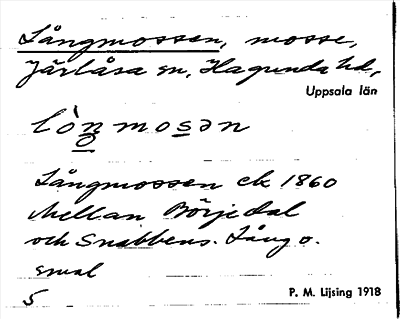 Långmossen, mosse,
Järlåsa sn, Hagunda hd,
Uppsala län
lòn̲mosən
Långmossen ek 1860
Mellan Börjedal
och Snabbens. Lång o.
smal
5
P. M. Lijsing 1918